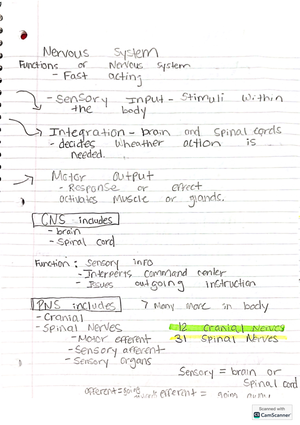 Nervous System
Functions of Nervous system
- Fast acting
- Sensory Input - Stimuli within
the body
Integration - brain and spinal cords
- decides wheather action is
needed.
Motor output
- Response or effect
activates muscle or glands.
CNS includes
- brain
- Spinal cord
Function: Sensory info
- Interperts command center
- Issues outgoing instruction
PNS includes > Many more in body
- Cranial
- Spinal Nerves 12 Cranial Nerves
- Motor efferent 31 Spinal Nerves
- Sensory afferent
- Sensory organs
Sensory = brain or
Spinal cord
afferent = going efferent = going away
Scanned with
CS CamScanner